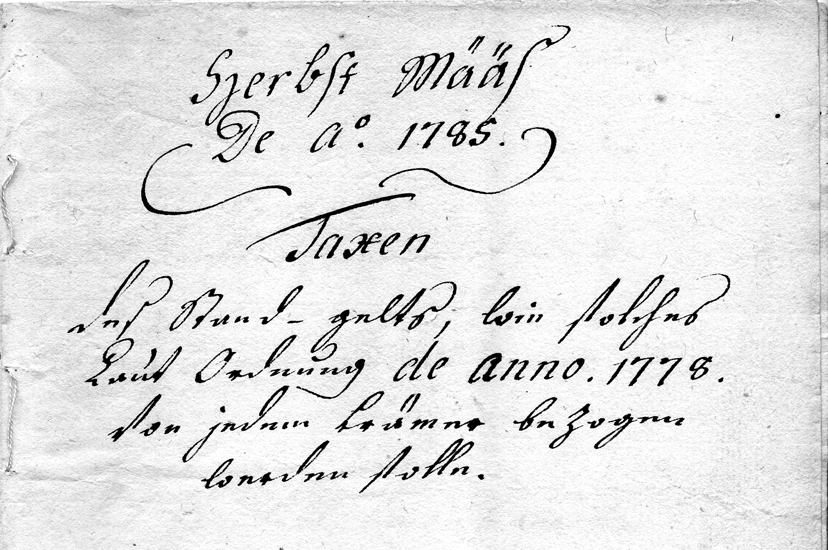 Herbst Määs
De Aº. 1785.
Taxen
des Stand-gelts, wie solches
Laut Ordnung de anno. 1778.
von jedem krämer bezogen
werden solle.